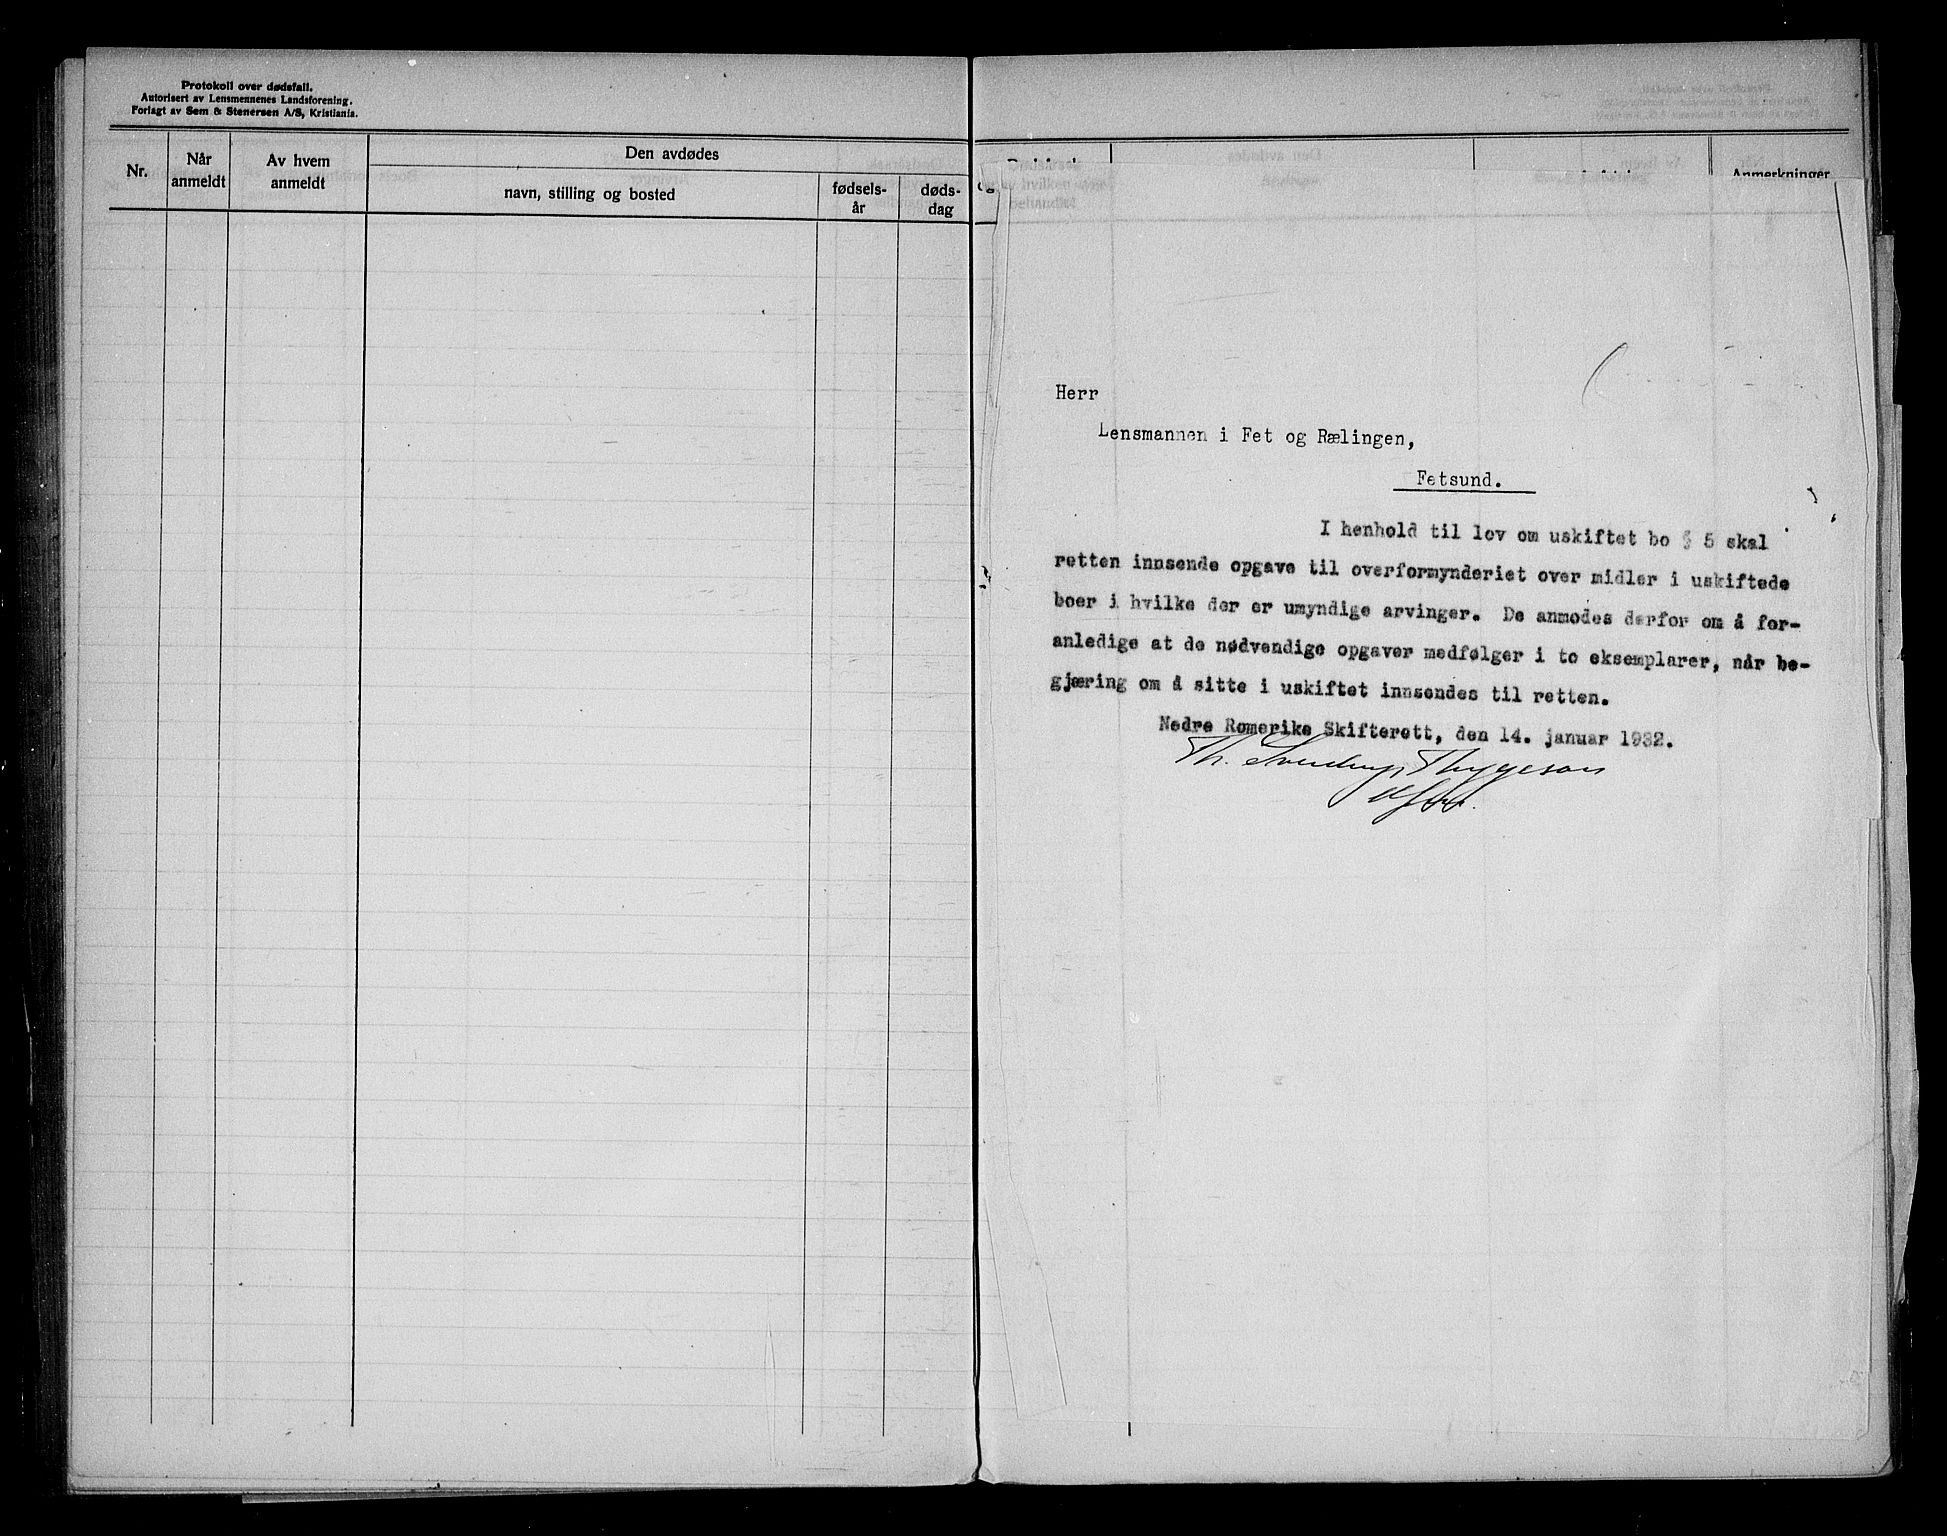 Protokoll over dødsfall.
Autorisert av Lensmennenes Landsforening.
Forlagt av Sem & Stenersen A/S, Kristiania.
Nr.
Når
anmeldt
Av hvem
anmeldt
Den avdødes
navn, stilling og bosted
fødsels-
år
døds-
dag
Anmerkninger
Herr
Lensmannen i Fet og Rælingen,
Fetsund.
I henhold til lov om uskiftet bo § 5 skal
retten innsende opgave til overformynderiet over midler i uskiftede
boer i hvilke der er umyndige arvinger. De anmodes derfor om å for-
anledige at de nødvendige opgaver medfølger i to eksemplarer, når be-
gjæring om å sitte i uskiftet innsendes til retten.
Nedre Romerike Skifterett, den 14. januar 1932.
Th. Sverdrup Thygeson